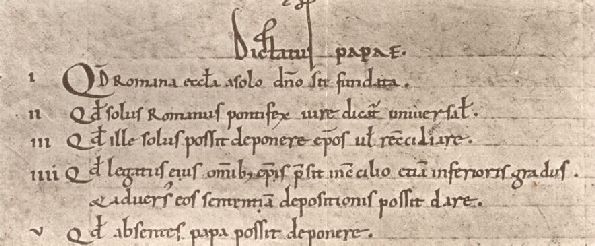 Dictatus papae.
i Qd Romana eccła a solo dno sit fundata.
ii Qd solus Romanus pontifex iure dicat universał.
iii Qđ ille solus possit deponere epos uł recciliare.
iiii Qđ legatus eius omnibꝫ epis psit in cilio etiā inferioris gradus.
& adversꝰ eos sententiā depositionis possit dare.
v Qđ absentes papa possit deponere.